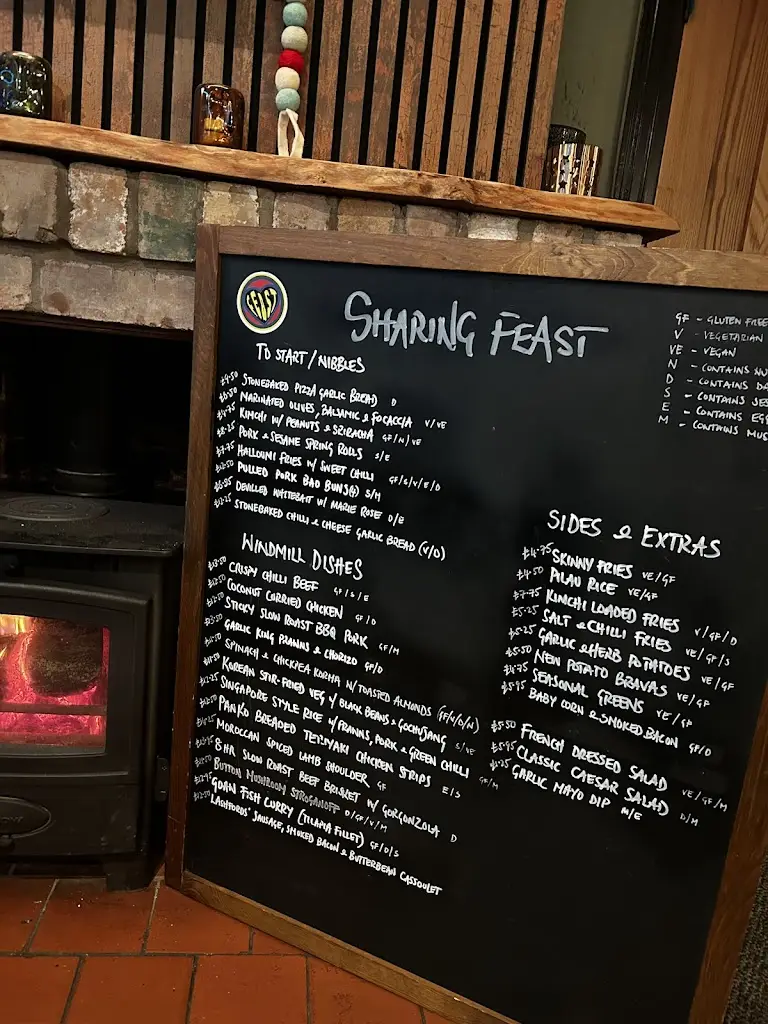 FEAST
SHARING FEAST
GF - GLUTEN FREE
V - VEGETARIAN
VE - VEGAN
N - CONTAINS
D - CONTAINS
S - CONTAINS
E - CONTAINS
M - CONTAINS
TO START / NIBBLES
STONEBAKED PIZZA GARLIC BREAD D
MARINATED OLIVES, BALSAMIC & FOCACCIA V/VE
KIMCHI W/ PEANUTS & SRIRACHA GF/N/VE
PORK & SESAME SPRING ROLLS S/E
HALLOUMI FRIES W/ SWEET CHILLI GF/S/V/E/D
PULLED PORK BAO BUNS S/M
DEVILLED WHITEBAIT W/ MARIE ROSE D/E
STONEBAKED CHILLI & CHEESE GARLIC BREAD (V/D)
WINDMILL DISHES
CRISPY CHILLI BEEF GF/S/E
COCONUT CURRIED CHICKEN GF/D
STICKY SLOW ROAST BBQ PORK GF/M
GARLIC KING PRAWNS & CHORIZO GF/D
SPINACH & CHICKPEA KORMA W/ TOASTED ALMONDS
KOREAN STIR-FRIED VEG W/ BLACK BEANS & GOCHUJANG S/VE
SINGAPORE STYLE RICE W/ PRAWNS, PORK & GREEN CHILLI GF/M
PANKO BREADED TERIYAKI CHICKEN STRIPS E/S
MOROCCAN SPICED LAMB SHOULDER GF
8HR SLOW ROAST BEEF BRISKET W/ GORGONZOLA D
BUTTON MUSHROOM STROGANOFF D/GF/V/M
GOAN FISH CURRY (TILAPIA FILLET) GF/D/S
LASHFORDS' SAUSAGE, SMOKED BACON & BUTTERBEAN CASSOULET
SIDES & EXTRAS
£4.75 SKINNY FRIES VE/GF
£4.50 PILAU RICE VE/GF
£7.75 KIMCHI LOADED FRIES V/GF/D
£5.25 SALT & CHILLI FRIES VE/GF/S
£5.25 GARLIC & HERB POTATOES VE/GF
£5.50 NEW POTATO BRAVAS VE/GF
£4.75 SEASONAL GREENS VE/GF
£5.95 BABY CORN & SMOKED BACON GF/D
£5.50 FRENCH DRESSED SALAD VE/GF/M
£5.95 CLASSIC CAESAR SALAD D/M
GARLIC MAYO DIP M/E